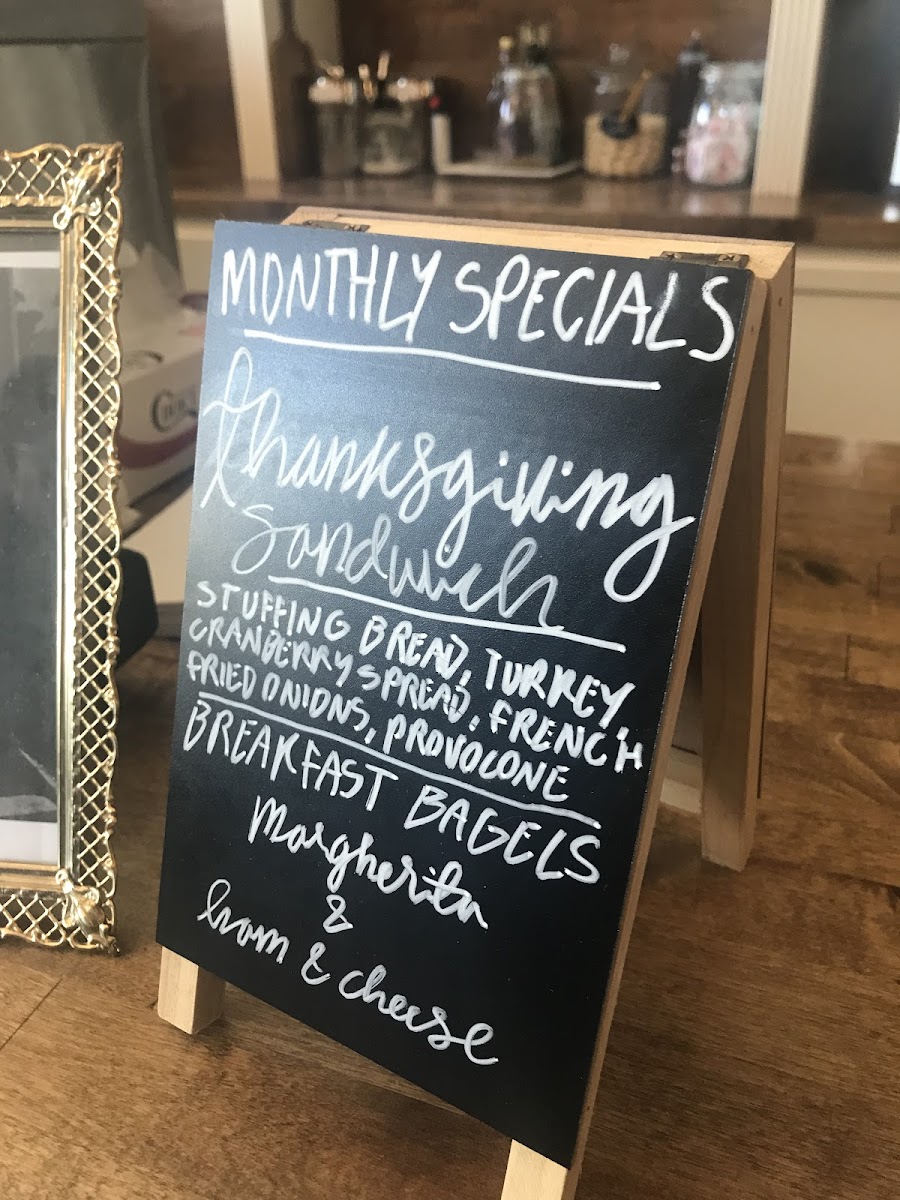 MONTHLY SPECIALS
thanksgiving
sandwich
STUFFING BREAD, TURKEY
CRANBERRY SPREAD, FRENCH
FRIED ONIONS, PROVOLONE
BREAKFAST BAGELS
Margherita
&
ham & cheese